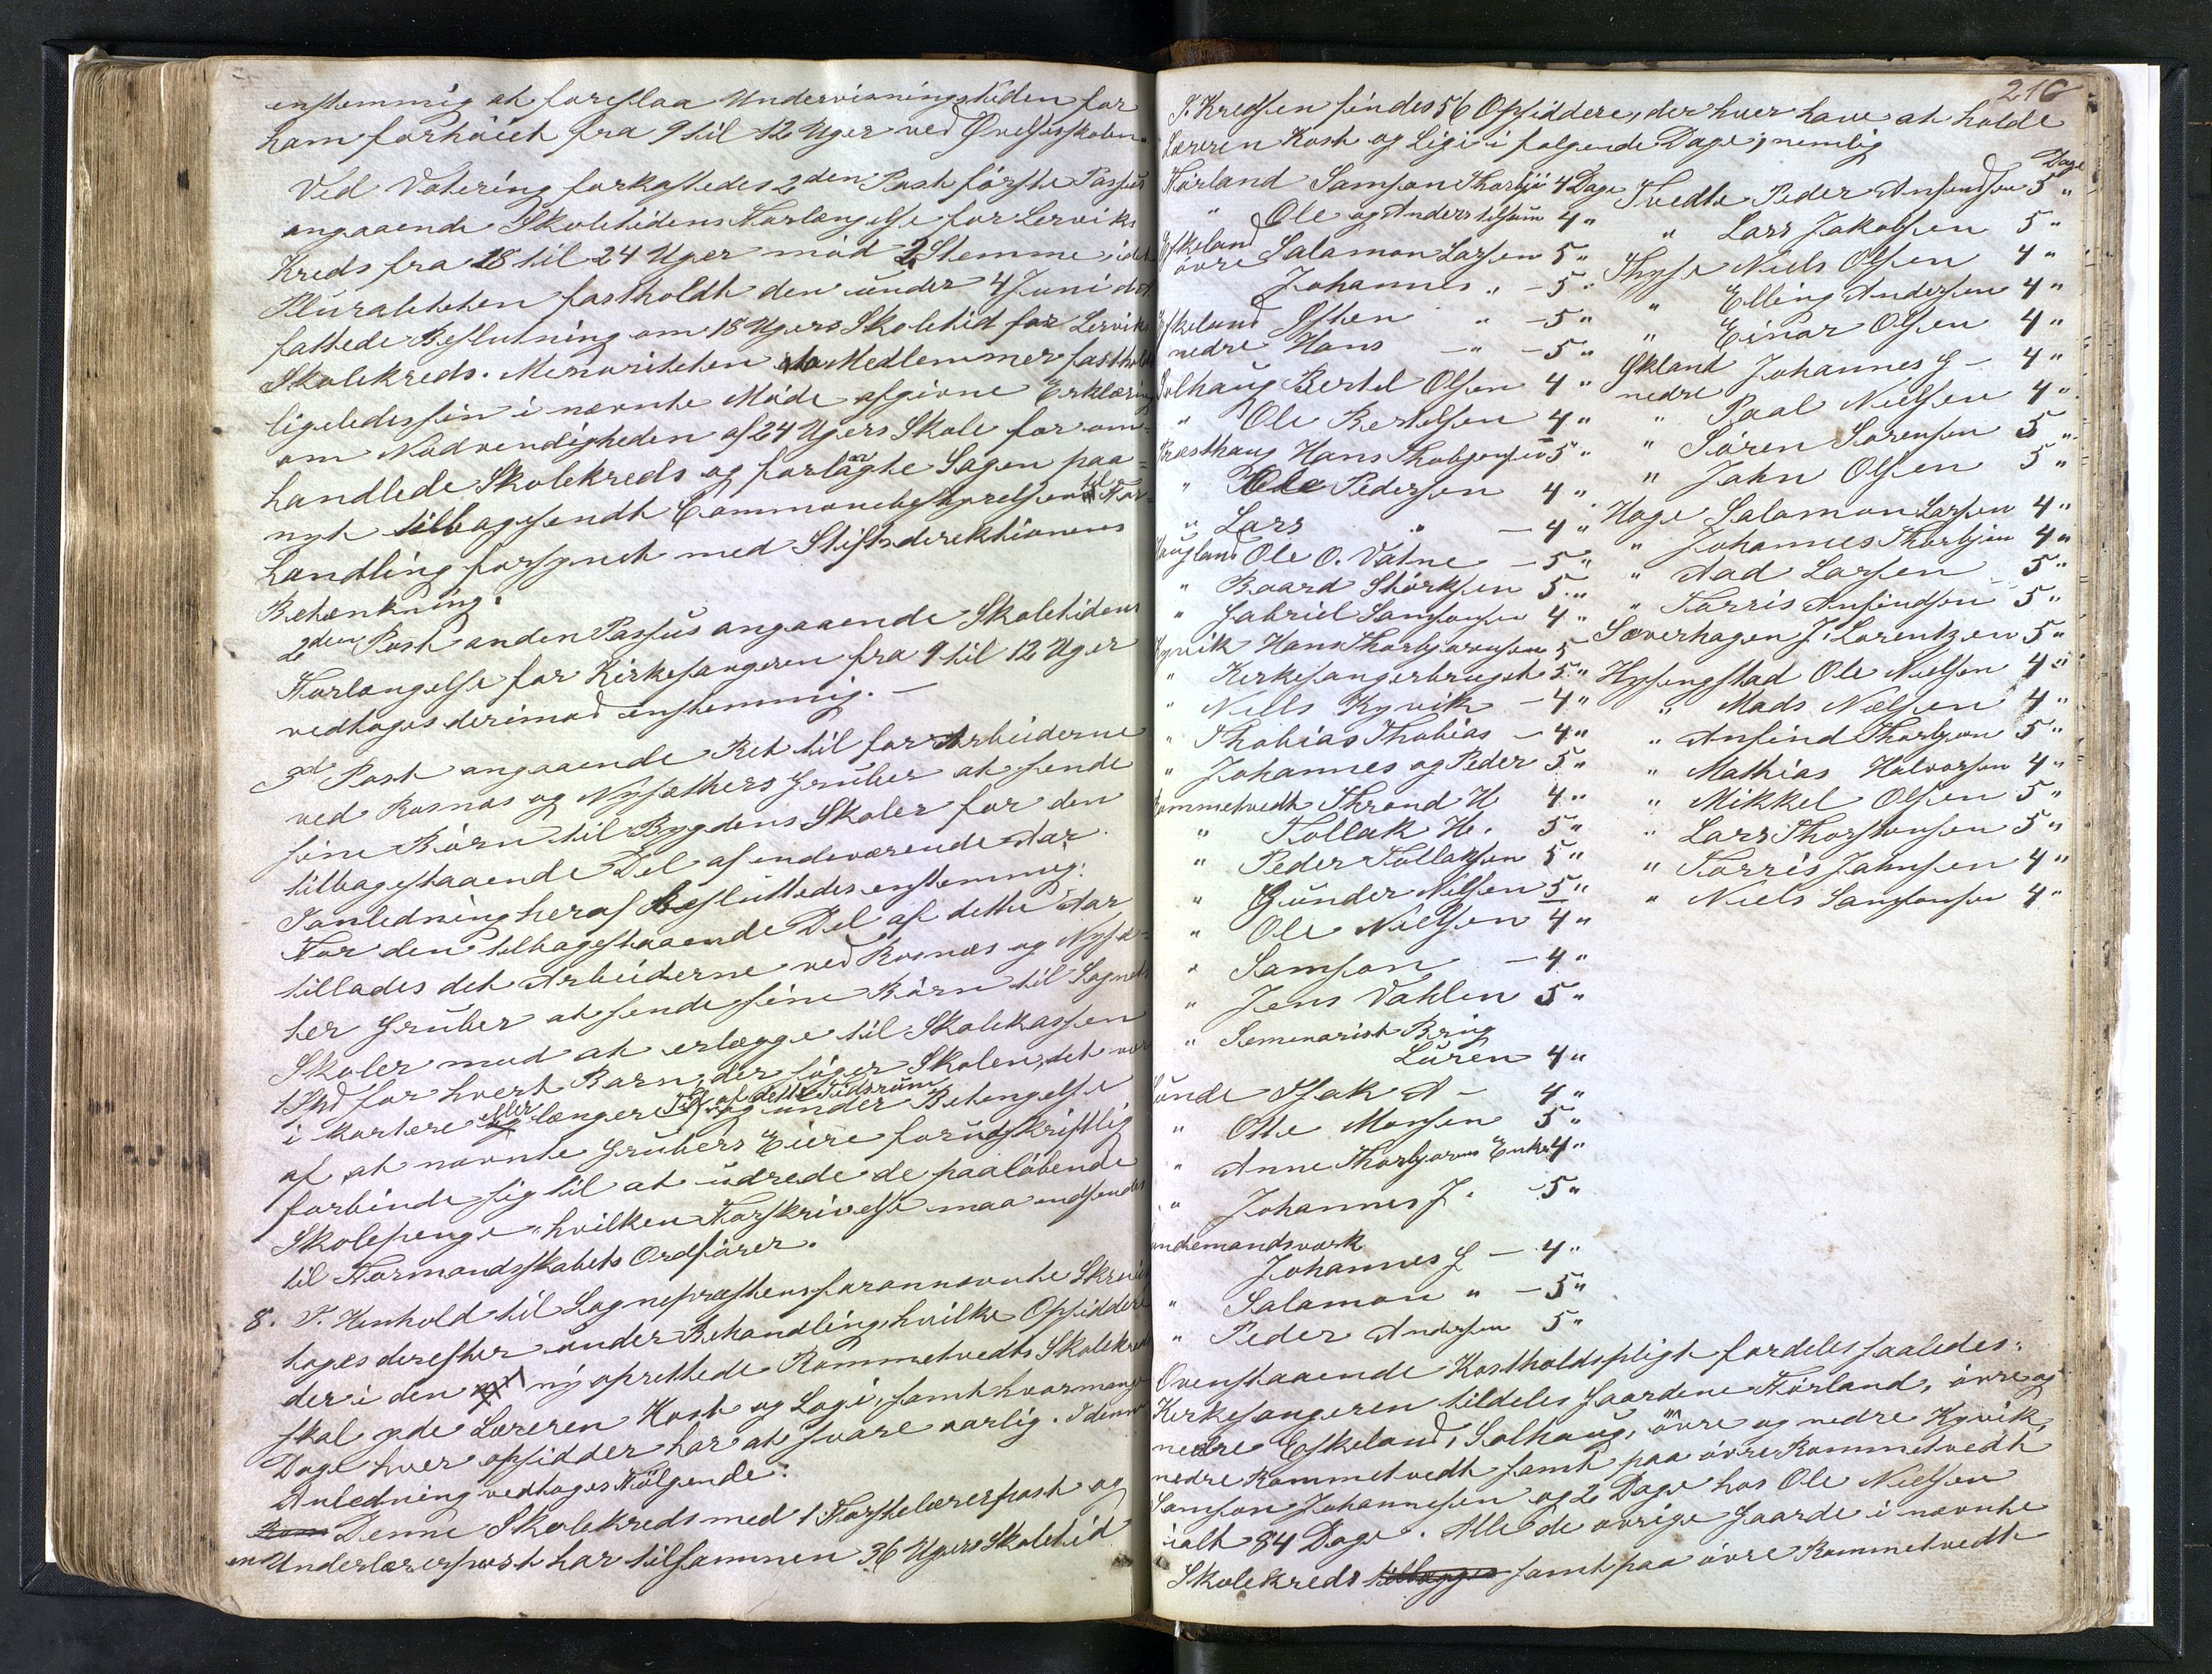 enstemmig at foreslaa Undervisningstiden for
ham forhøiet fra 9 til 12 Uger ved Øvelsesskolen.
Ved Votering forkastedes 2den Post første Passus
angaaende Skoletidens Forlængelse for Lerviks
Kreds fra 18 til 24 Uger mod 2 Stemme, idet
Pluraliteten fastholdt den under 4 Juni d.A.
fattede Beslutning om 18 Ugers Skoletid for Lerviks
Skolekreds. Menoriteten 2 Medlemmer fastholdt
ligeledes sin i nævnte Møde afgivne Erklæring
om Nødvendigheden af 24 Ugers Skole for om-
handlede Skolekreds og forlangte Sagen paa-
nyt tilbagesendt Communebestyrelsen til For-
handling forsynet med Stiftsdirektionens
Betænkning.
2den Post anden Passus angaaende Skoletidens
Forlængelse for Kirkesangeren fra 9 til 12 Uger
vedtoges derimod enstemmig. —
3d Post angaaende Ret til for Arbeiderne
ved Rosnæs og Nysæthers Gruber at sende
sine Børn til Bygdens Skoler for den
tilbagestaaende Del af indeværende Aar.
I anledning heraf besluttedes enstemmig:
For den tilbagestaaende Del af dette Aar
tillades det Arbeiderne ved Rosnæs og Nysæ-
ter Gruber at sende sine Børn til Sognets
Skoler mod at erlægge til Skolekassen
1 Spd for hvert Barn, der søger Skolen, det være
i kortere eller længere Tid af dette Tidsrum og under Betingelse
af at nævnte Grubers Eiere forud skriftlig
forbinde sig til at udrede de paaløbende
Skolepenge, hvilken Forskrivelse maa indsendes
til Formandsskabets Ordfører.
8. I Henhold til Sognepræstens forannævnte Skrivelse
toges derefter under Behandling hvilke Opsiddere
der i den ny oprettede Rommetvedts Skolekreds
skal yde Læreren Kost og Logi, samt hvormange
Dage hver opsidder har at svare aarlig. I denne
Anledning vedtoges Følgende:
Denne Skolekreds med 1 Førstelærerpost og
en Underlærerpost har tilsammen 36 Ugers Skoletid
210
I Kredsen findes 56 Opsiddere, der hver have at holde
Læreren Kost og Logi i følgende Dage, nemlig
Dage
Førland Samson Thorbjö 4 Dage Tvedte Peder Ansendsen 5 "
" Ole og Anders 4 " " Lars Jakobsen 5 "
Eskeland øvre Salamon Larsen 5 " Thyse Niels Olsen 4 "
Johannes " - 5 " " Elling Andersen 4 "
Eskeland nedre Osten " - 5 " " Einar Olsen 4 "
Hans - " - 5 " Økland nedre Johannes J - 4 "
Solhaug Bertel Olsen 4 " " Paal Nielsen 4 "
" Ole Bertelsen 4 " " Søren Sørensen 5 "
Præsthaug Hans Thobjensen 5 " " Jahn Olsen 5 "
" Ole Pedersen 4 " Hage Salamon Larsen 4 "
" Lars " - 4 " " Johannes Thorbjön 4 "
Haugland Ole O. Vatne - 5 " " Aad Larsen 5 "
" Baard Störksen 5 " " Torris Anfindsen 5 "
" Gabriel Samsonsen 4 " Sæverhagen J. Lorentzen 5 "
Kyvik Hans Thorbjørnsen 5 Hysingstad Ole Nielsen 4 "
" Kirkesangerbruget 5 " " Mads Nielsen 4 "
" Niels Kyvik - 4 " " Anfind Thorbjøn 5 "
" Thobias Thobias - 4 " " Mathias Halvorsen 4 "
" Johannes og Peder 5 " " Mikkel Olsen 5 "
Rommetvedt Thrond H 4 " " Lars Thorstensen 5 "
" Tollak H. 5 " " Torris Jahnsen 4 "
" Peder Tollaksen 5 " " Niels Samsonsen 4 "
" Gunder Nilsen 5 "
" Ole Nielsen 4 "
" Samson - 4 "
" Jens Vahlen 5 "
" Semenarist Bring
Luren 4 "
Lunde Isak A - 4 "
" Otte Monsen 5 "
" Anne Thorbjørns Enke 4 "
" Johannes J. - 5 "
Lndemandsverk
Johannes J - 4 "
" Salamon " - 5 "
" Peder Andersen 5 "
Ovenstaaende Kostholdspligt fordeles saaledes:
Kirkesangeren tildeles Gaardene Førland, øvre og
nedre Eskeland, Solhaug, øvre og nedre Kyvik,
nedre Rommetvedt samt paa øvre Rommetvedt
Samson Johannesen og 2 Dage hos Ole Nielsen
ialt 84 Dage. Alle de øvrige Gaarde i nævnte
Skolekreds samt paa øvre Rommetvedt